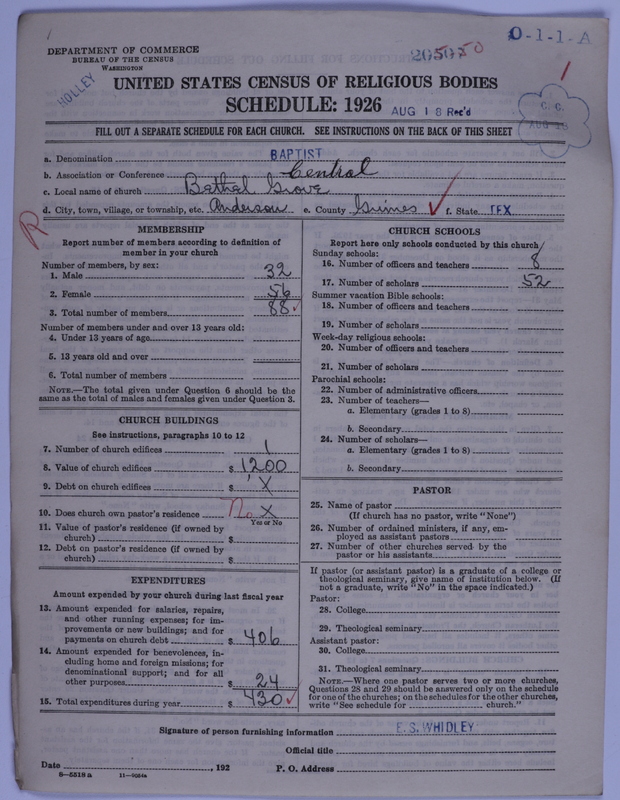 O-1-1-A
DEPARTMENT OF COMMERCE
BUREAU OF THE CENSUS
WASHINGTON
HOLLEY
UNITED STATES CENSUS OF RELIGIOUS BODIES
SCHEDULE: 1926
AUG 18 Rec'd
C. C.
FILL OUT A SEPARATE SCHEDULE FOR EACH CHURCH. SEE INSTRUCTIONS ON THE BACK OF THIS SHEET
a. Denomination BAPTIST
b. Association or Conference Central
c. Local name of church Bethel Grove
d. City, town, village, or township, etc. Anderson e. County Grimes f. State TEX
R
MEMBERSHIP
Report number of members according to definition of
member in your church
Number of members, by sex:
1. Male 32
2. Female 56
3. Total number of members 88
Number of members under and over 13 years old:
4. Under 13 years of age
5. 13 years old and over
6. Total number of members
NOTE.—The total given under Question 6 should be the
same as the total of males and females given under Question 3.
CHURCH BUILDINGS
See instructions, paragraphs 10 to 12
7. Number of church edifices 1
8. Value of church edifices $ 1200
9. Debt on church edifices $ X
10. Does church own pastor's residence No X
Yes or No
11. Value of pastor's residence (if owned by
church) $
12. Debt on pastor's residence (if owned by
church) $
EXPENDITURES
Amount expended by your church during last fiscal year
13. Amount expended for salaries, repairs,
and other running expenses; for im-
provements or new buildings; and for
payments on church debt $ 406
14. Amount expended for benevolences, in-
cluding home and foreign missions; for
denominational support; and for all
other purposes $ 24
15. Total expenditures during year $ 430
CHURCH SCHOOLS
Report here only schools conducted by this church
Sunday schools:
16. Number of officers and teachers 8
17. Number of scholars 52
Summer vacation Bible schools:
18. Number of officers and teachers
19. Number of scholars
Week-day religious schools:
20. Number of officers and teachers
21. Number of scholars
Parochial schools:
22. Number of administrative officers
23. Number of teachers—
a. Elementary (grades 1 to 8)
b. Secondary
24. Number of scholars—
a. Elementary (grades 1 to 8)
b. Secondary
PASTOR
25. Name of pastor
(If church has no pastor, write "None")
26. Number of ordained ministers, if any, em-
ployed as assistant pastors
27. Number of other churches served by the
pastor or his assistants
If pastor (or assistant pastor) is a graduate of a college or
theological seminary, give name of institution below. (If
not a graduate, write "No" in the space indicated.)
Pastor:
28. College
29. Theological seminary
Assistant pastor:
30. College
31. Theological seminary
NOTE.—Where one pastor serves two or more churches,
Questions 28 and 29 should be answered only on the schedule
for one of the churches; on the schedules for the other churches,
write "See schedule for church."
Signature of person furnishing information E. S. WHIDLEY
Official title
Date , 192 P. O. Address
8—5518a